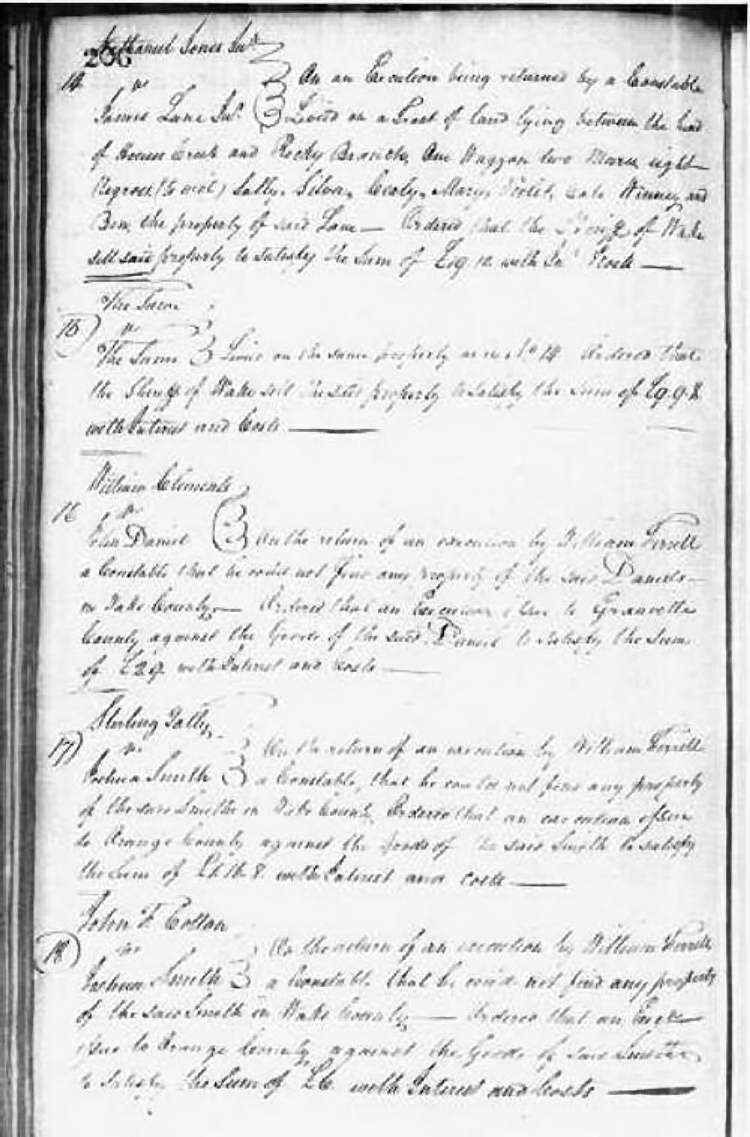 206
Nathaniel Jones Junr
14 vs On an Execution being returned by a Constable
James Lane Jnr. Levied on a Tract of land lying between the head
of House Creek and Rocky Branch, One Waggon two Mares eight
Negroes (to wit) Sally, Silva, Mary, Violet, Winney and
Ben, the property of said Lane — Ordered that the Sheriff of Wake
sell said property to satisfy the Sum of with Int. & Costs —
The Same
15 vs
The Same Levied on the same property as in No. 14 Ordered that
the Sheriff of Wake sell the said property to satisfy the Sum of £9.9.8
with Interest and Costs —
William Clements
16 vs
John Daniel On the return of an execution by William Ferrell
a Constable that he could not find any property of the said Daniels
in Wake County — Ordered that an Execution issue to Granville
County against the Goods of the said Daniel to satisfy the Sum
of £29 with Interest and Costs —
Sterling
17 vs On the return of an execution by William Ferrell
Joshua Smith a Constable, that he could not find any property
of the said Smith in Wake County, Ordered that an execution issue
to Orange County against the goods of the said Smith to satisfy
the Sum of with Interest and Costs —
John F Cotton
18 vs On the return of an execution by William Ferrell
Joshua Smith a Constable that he could not find any property
of the said Smith in Wake County — Ordered that an
issue to Orange County against the Goods of said Smith
to satisfy the Sum of £6 with Interest and Costs —